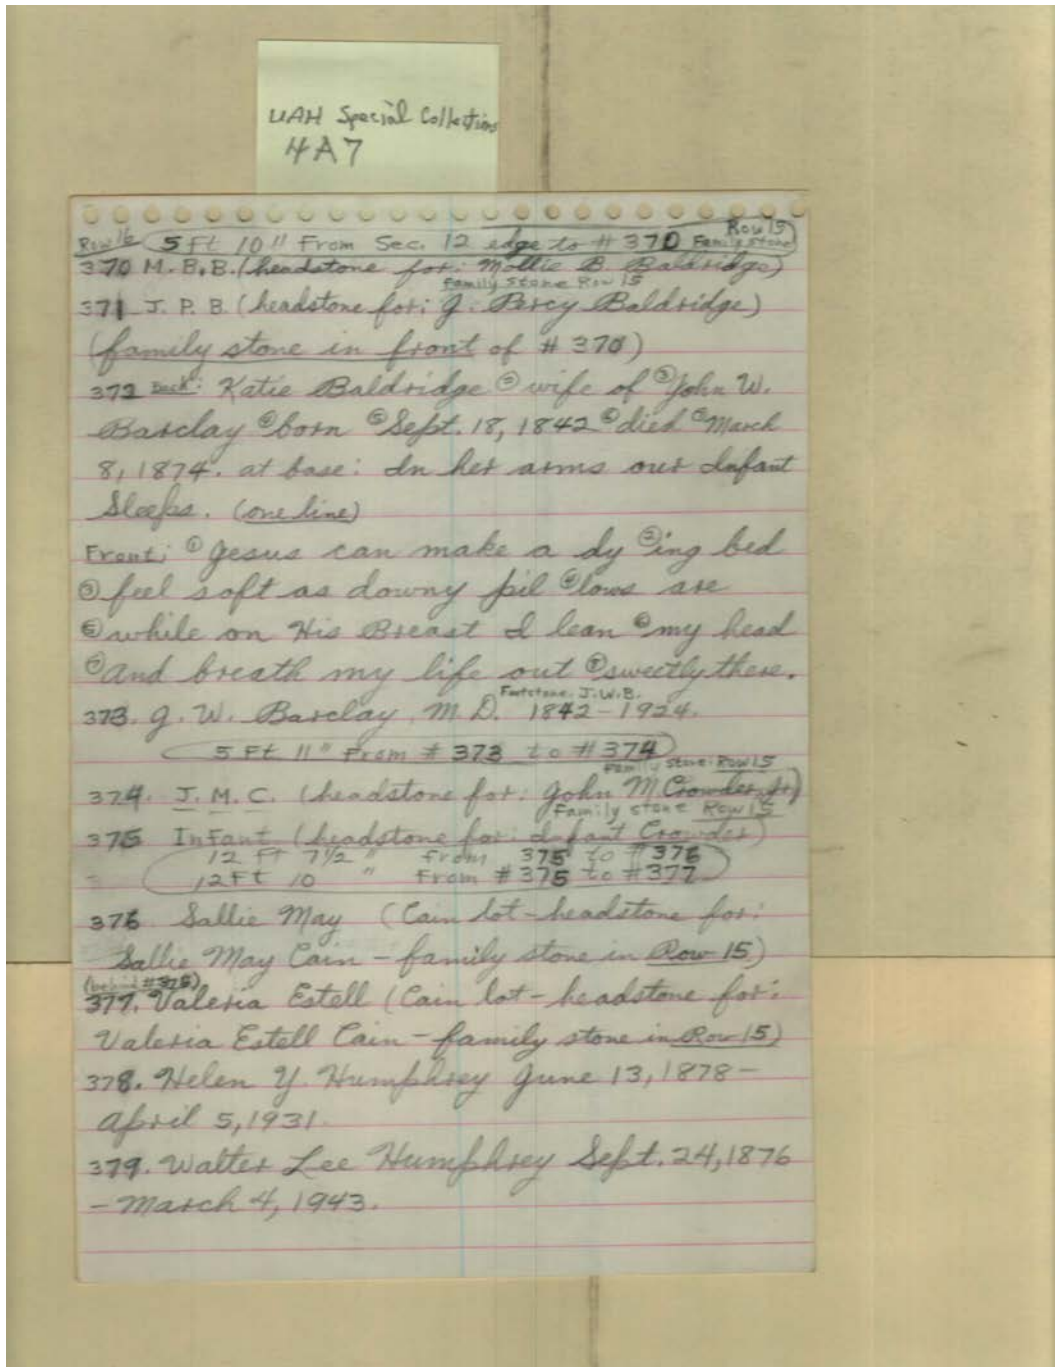 UAH Special Collections
4A7
Row 16 5 Ft 10" From Sec. 12 edge to # 370 Family stone Row 15
370 M. B. B. (headstone for: Mollie B. Baldridge)
Family Stone Row 15
371 J. P. B. (headstone for: J. Percy Baldridge)
(family stone in front of # 370)
372 Back: Katie Baldridge ② wife of ③ John W.
Barclay ④ born ⑤ Sept. 18, 1842 ⑥ died ⑦ March
8, 1874. at base: In her arms our Infant
Sleeps. (one line)
Front: ① Jesus can make a dy ② ing bed
③ feel soft as downy pil ④ lows are
⑤ while on His Breast I lean ⑥ my head
⑦ And breath my life out ⑧ sweetly there.
Footstone: J.W.B.
373. J. W. Barclay, M.D. 1842-1924.
5 Ft 11" From # 373 to # 374
Family stone: Row 15
374. J. M. C. (headstone for: John M. Crowder, Jr)
Family stone Row 15
375 Infant (headstone for: Infant Crowder)
12 Ft 7 1/2 " from 375 to # 376
12 Ft 10 " From # 375 to # 377
376 Sallie May (Cain lot - headstone for:
Sallie May Cain - family stone in Row 15)
(behind # 375)
377. Valeria Estell (Cain lot - headstone for:
Valeria Estell Cain - family stone in Row 15)
378. Helen Y. Humphrey June 13, 1878 -
April 5, 1931.
379. Walter Lee Humphrey Sept. 24, 1876
- March 4, 1943.